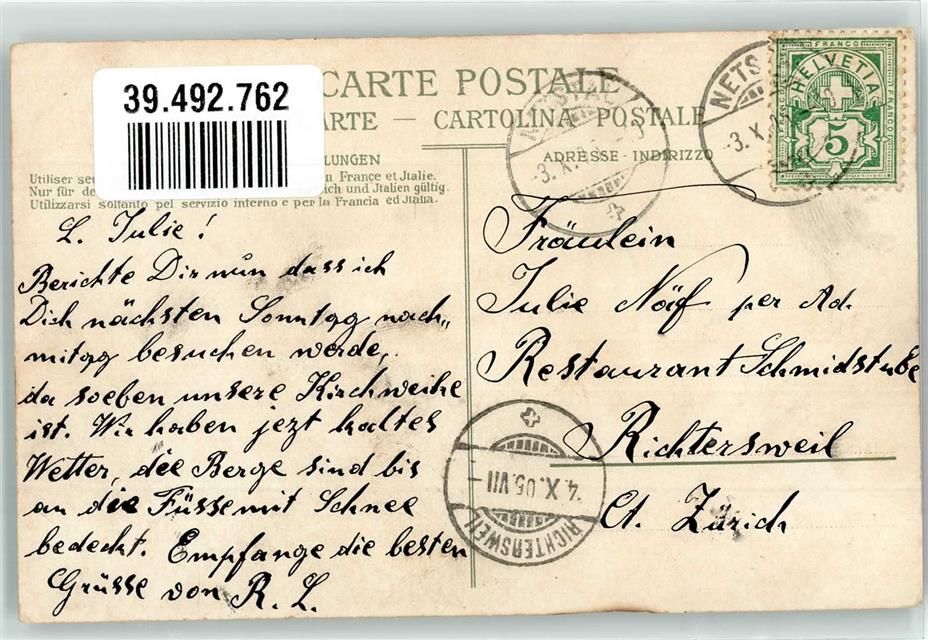 39.492.762
CARTE POSTALE
ARTE — CARTOLINA POSTALE
LUNGEN
ADRESSE - INDIRIZZO
Utiliser seu n France et Jtalie.
Nur für de ich und Jtalien gültig.
Utilizzarsi soltanto pel servizio interno e per la Francia ed Jtalia.
NETS
3. X.
3. X.
FRANCO
HELVETIA
FRANCO
FRANCO
5
L. Julie!
Berichte Dir nun dass ich
Dich nächsten Sonntag nach„
mittag besuchen werde,
da soeben unsere Kirchweihe
ist. Wir haben jezt kaltes
Wetter, die Berge sind bis
an die Füsse mit Schnee
bedeckt. Empfange die besten
Grüsse von R. L.
Fräulein
Julie Näf per Ad.
Restaurant Schmidstube
Richtersweil
Ct. Zürich
4. X. 05. VII
RICHTERSWEIL